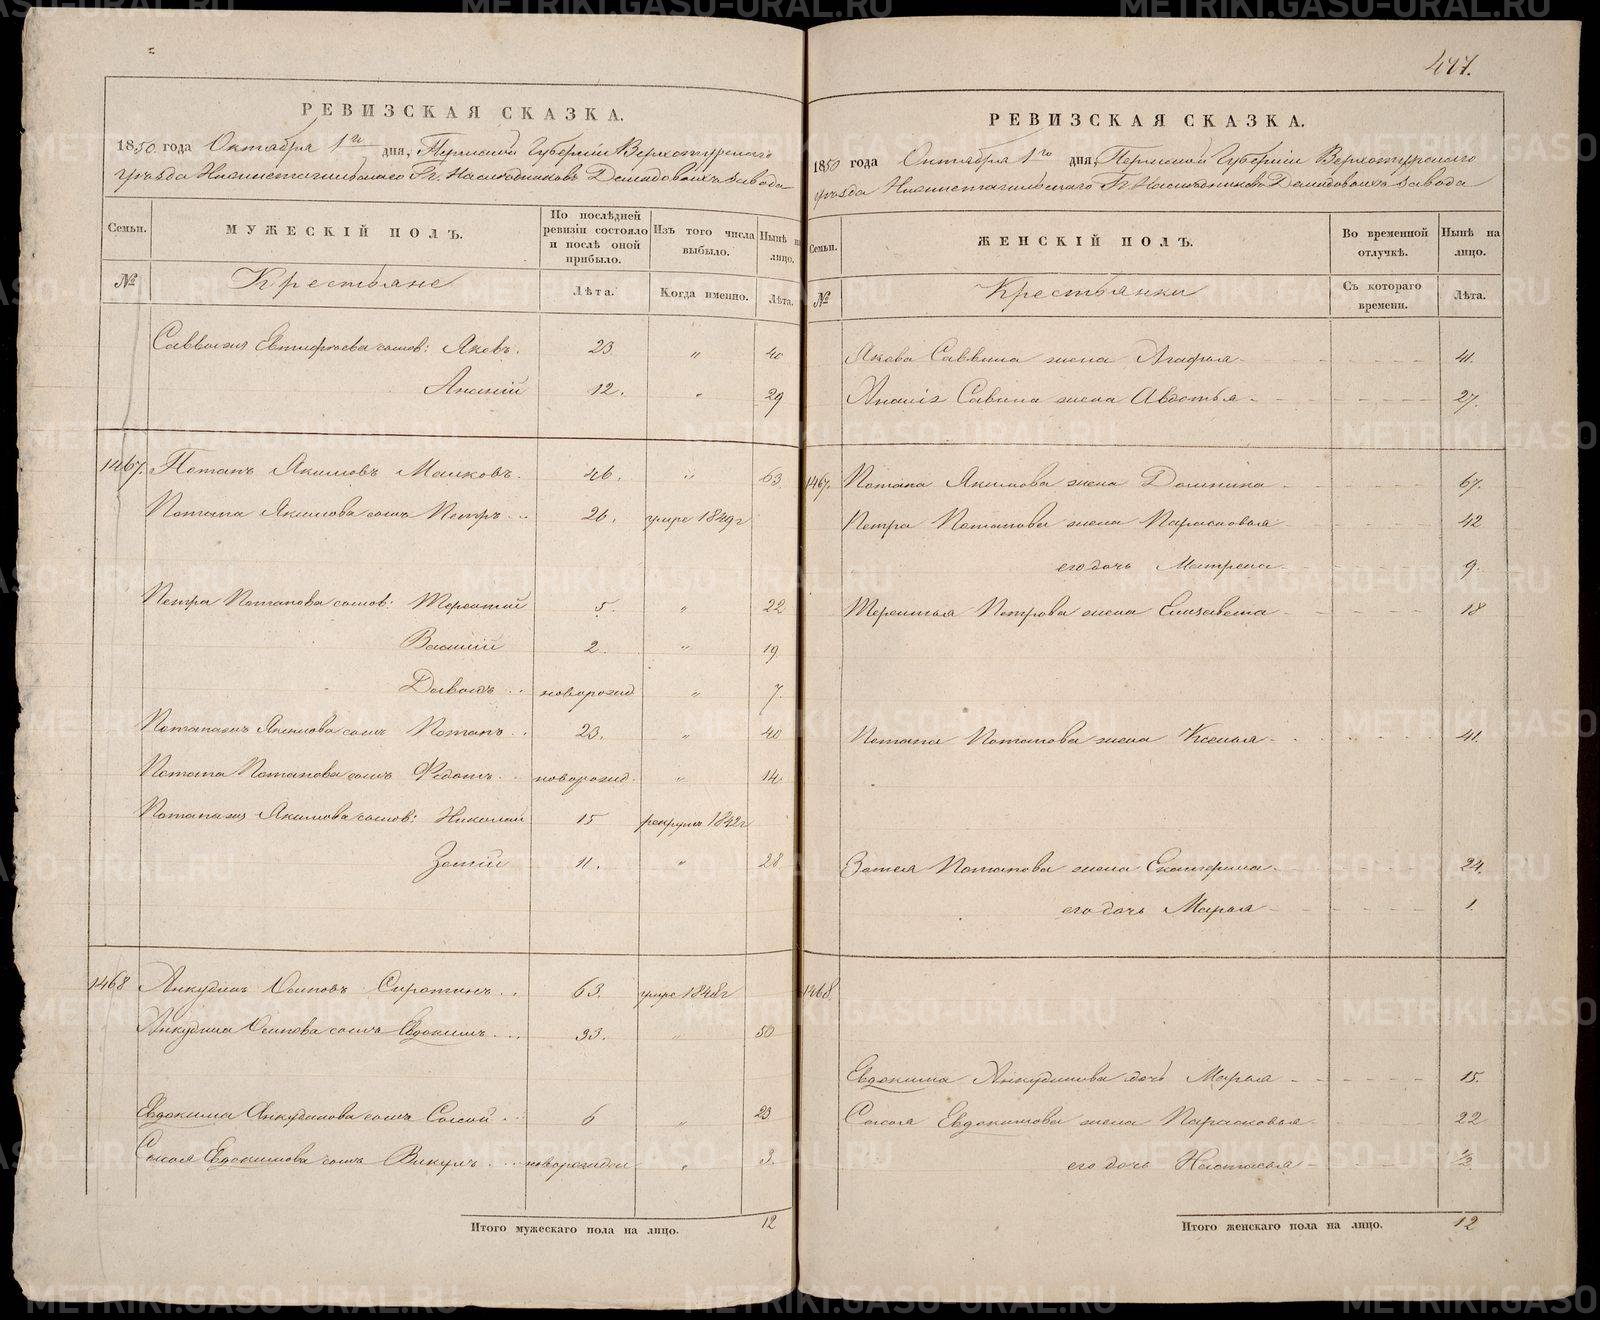 417.
РЕВИЗСКАЯ СКАЗКА.
1850 года Октября 1го дня, Пермской Губернии Верхотурского
уезда Нижнетагильского Гг. Наследников Демидовых завода
Семьи. МУЖЕСКІЙ ПОЛЪ. По послѣдней ревизіи состояло и послѣ оной прибыло. Изъ того числа выбыло. Нынѣ на лицо.
№ Крестьяне Лѣта. Когда именно. Лѣта.
Саввы Евтифѣева сынов: Яковъ. 23 " 40
Ананій 12. " 29
1467. Потапъ Якимовъ Малковъ. 46. " 63
Потапа Якимова сынъ Петръ 26. умре 1849г
Петра Потапова сынов: Терентій 5. " 22
Василій 2 " 19
Давыдъ новорожд " 7.
Потапа Якимова сынъ Потапъ 23. " 40
Потапа Потапова сынъ Федотъ новорожд. " 14.
Потапа Якимова сынов: Николай 15 рекрутъ 1842г
Зотій 11. " 28
1468 Анкудинъ Осиповъ Сиротинъ 63. умре 1848г
Анкудина Осипова сынъ Евдокимъ 33. " 50
Евдокима Анкудинова сынъ Сысой 6 " 23
Сысоя Евдокимова сынъ Викулъ новорожден " 3.
Итого мужескаго пола на лицо. 12
РЕВИЗСКАЯ СКАЗКА.
1850 года Октября 1го дня, Пермской Губерніи Верхотурского
уезда Нижнетагильского Гг. Наследников Демидовых завода
Семьи. ЖЕНСКІЙ ПОЛЪ. Во временной отлучкѣ. Нынѣ на лицо.
№ Крестьянки Съ котораго времени. Лѣта.
Якова Саввина жена Агафья 41.
Ананія Савина жена Авдотья 27.
1467. Потапа Якимова жена Домника 67.
Петра Потапова жена Парасковья 42
его дочь Матрена 9.
Терентья Петрова жена Елизавета 18
Потапа Потапова жена Ксенья 41.
Зотея Потапова жена Екатерина 24.
его дочь Марья 1.
1468.
Евдокима Анкудинова дочь Марья 15.
Сысоя Евдокимова жена Парасковья 22
его дочь Настасья 1/2
Итого женскаго пола на лицо. 12
METRIKI.GASO-URAL.RU